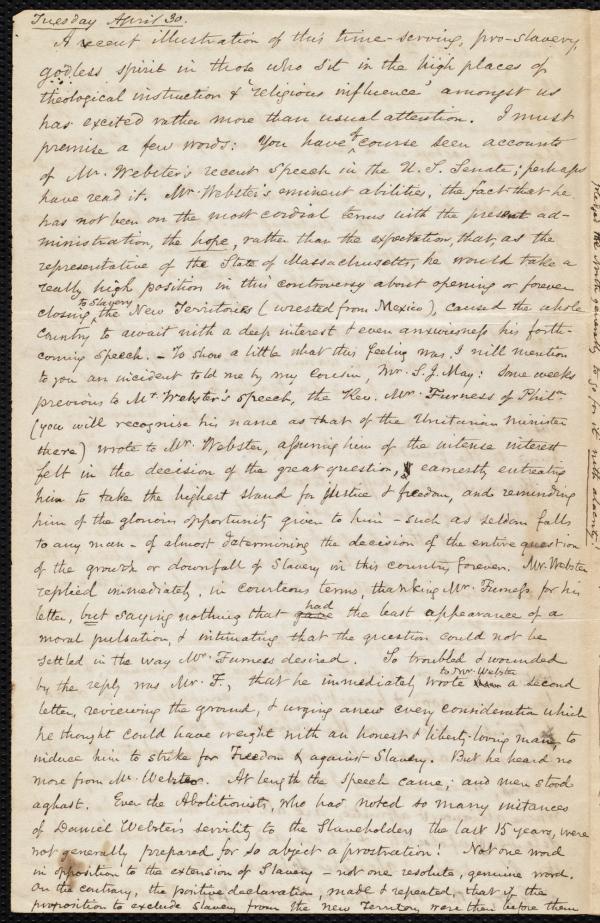 Tuesday April 30.
A recent illustration of this time-serving, pro-slavery,
godless spirit in those who sit in the high places of
theological instruction & 'religious influence' amongst us
has excited rather more than usual attention. I must
premise a few words: You have of course seen accounts
of Mr. Webster's recent Speech in the U. S. Senate; perhaps
have read it. Mr. Webster's eminent abilities, the fact that he
has not been on the most cordial terms with the present ad-
ministration, the hope, rather than the expectation, that, as the
representative of the State of Massachusetts, he would take a
really high position in this controversy about opening or forever
closing to Slavery the New Territories (wrested from Mexico), caused the whole
Country to await with a deep interest & even anxiousness his forth-
coming Speech. - To show a little what this feeling was, I will mention
to you an incident told me by my Cousin, Mr. S. J. May: Some weeks
previous to Mr. Webster's Speech, the Rev. Mr. Furness of Phila
(you will recognise his name as that of the Unitarian Minister
there) wrote to Mr. Webster, assuring him of the intense interest
felt in the decision of the great question, & earnestly entreating
him to take the highest stand for justice & freedom, and reminding
him of the glorious opportunity given to him - such as seldom falls
to any man - of almost determining the decision of the entire question
of the growth or downfall of Slavery in this country forever. Mr. Webster
replied immediately, in courteous terms, thanking Mr. Furness for his
letter, but saying nothing that had the least appearance of a
moral pulsation, & intimating that the question could not be
settled in the way Mr. Furness desired. So troubled & wounded
by the reply was Mr. F., that he immediately wrote to Mr. Webster a second
letter, reviewing the ground, & urging anew every consideration which
he thought could have weight with an honest & liberty-loving man, to
induce him to strike for Freedom & against Slavery. But he heard no
more from Mr. Webster. At length the Speech came; and men stood
aghast. Even the Abolitionists, who had noted so many instances
of Daniel Webster's servility to the Slaveholders the last 15 years, were
not generally prepared for so abject a prostration! Not one word
in opposition to the extension of Slavery - not one resolute, genuine word.
On the contrary, the positive declaration, made & repeated, that if the
proposition to exclude Slavery from the new Territory were then before them